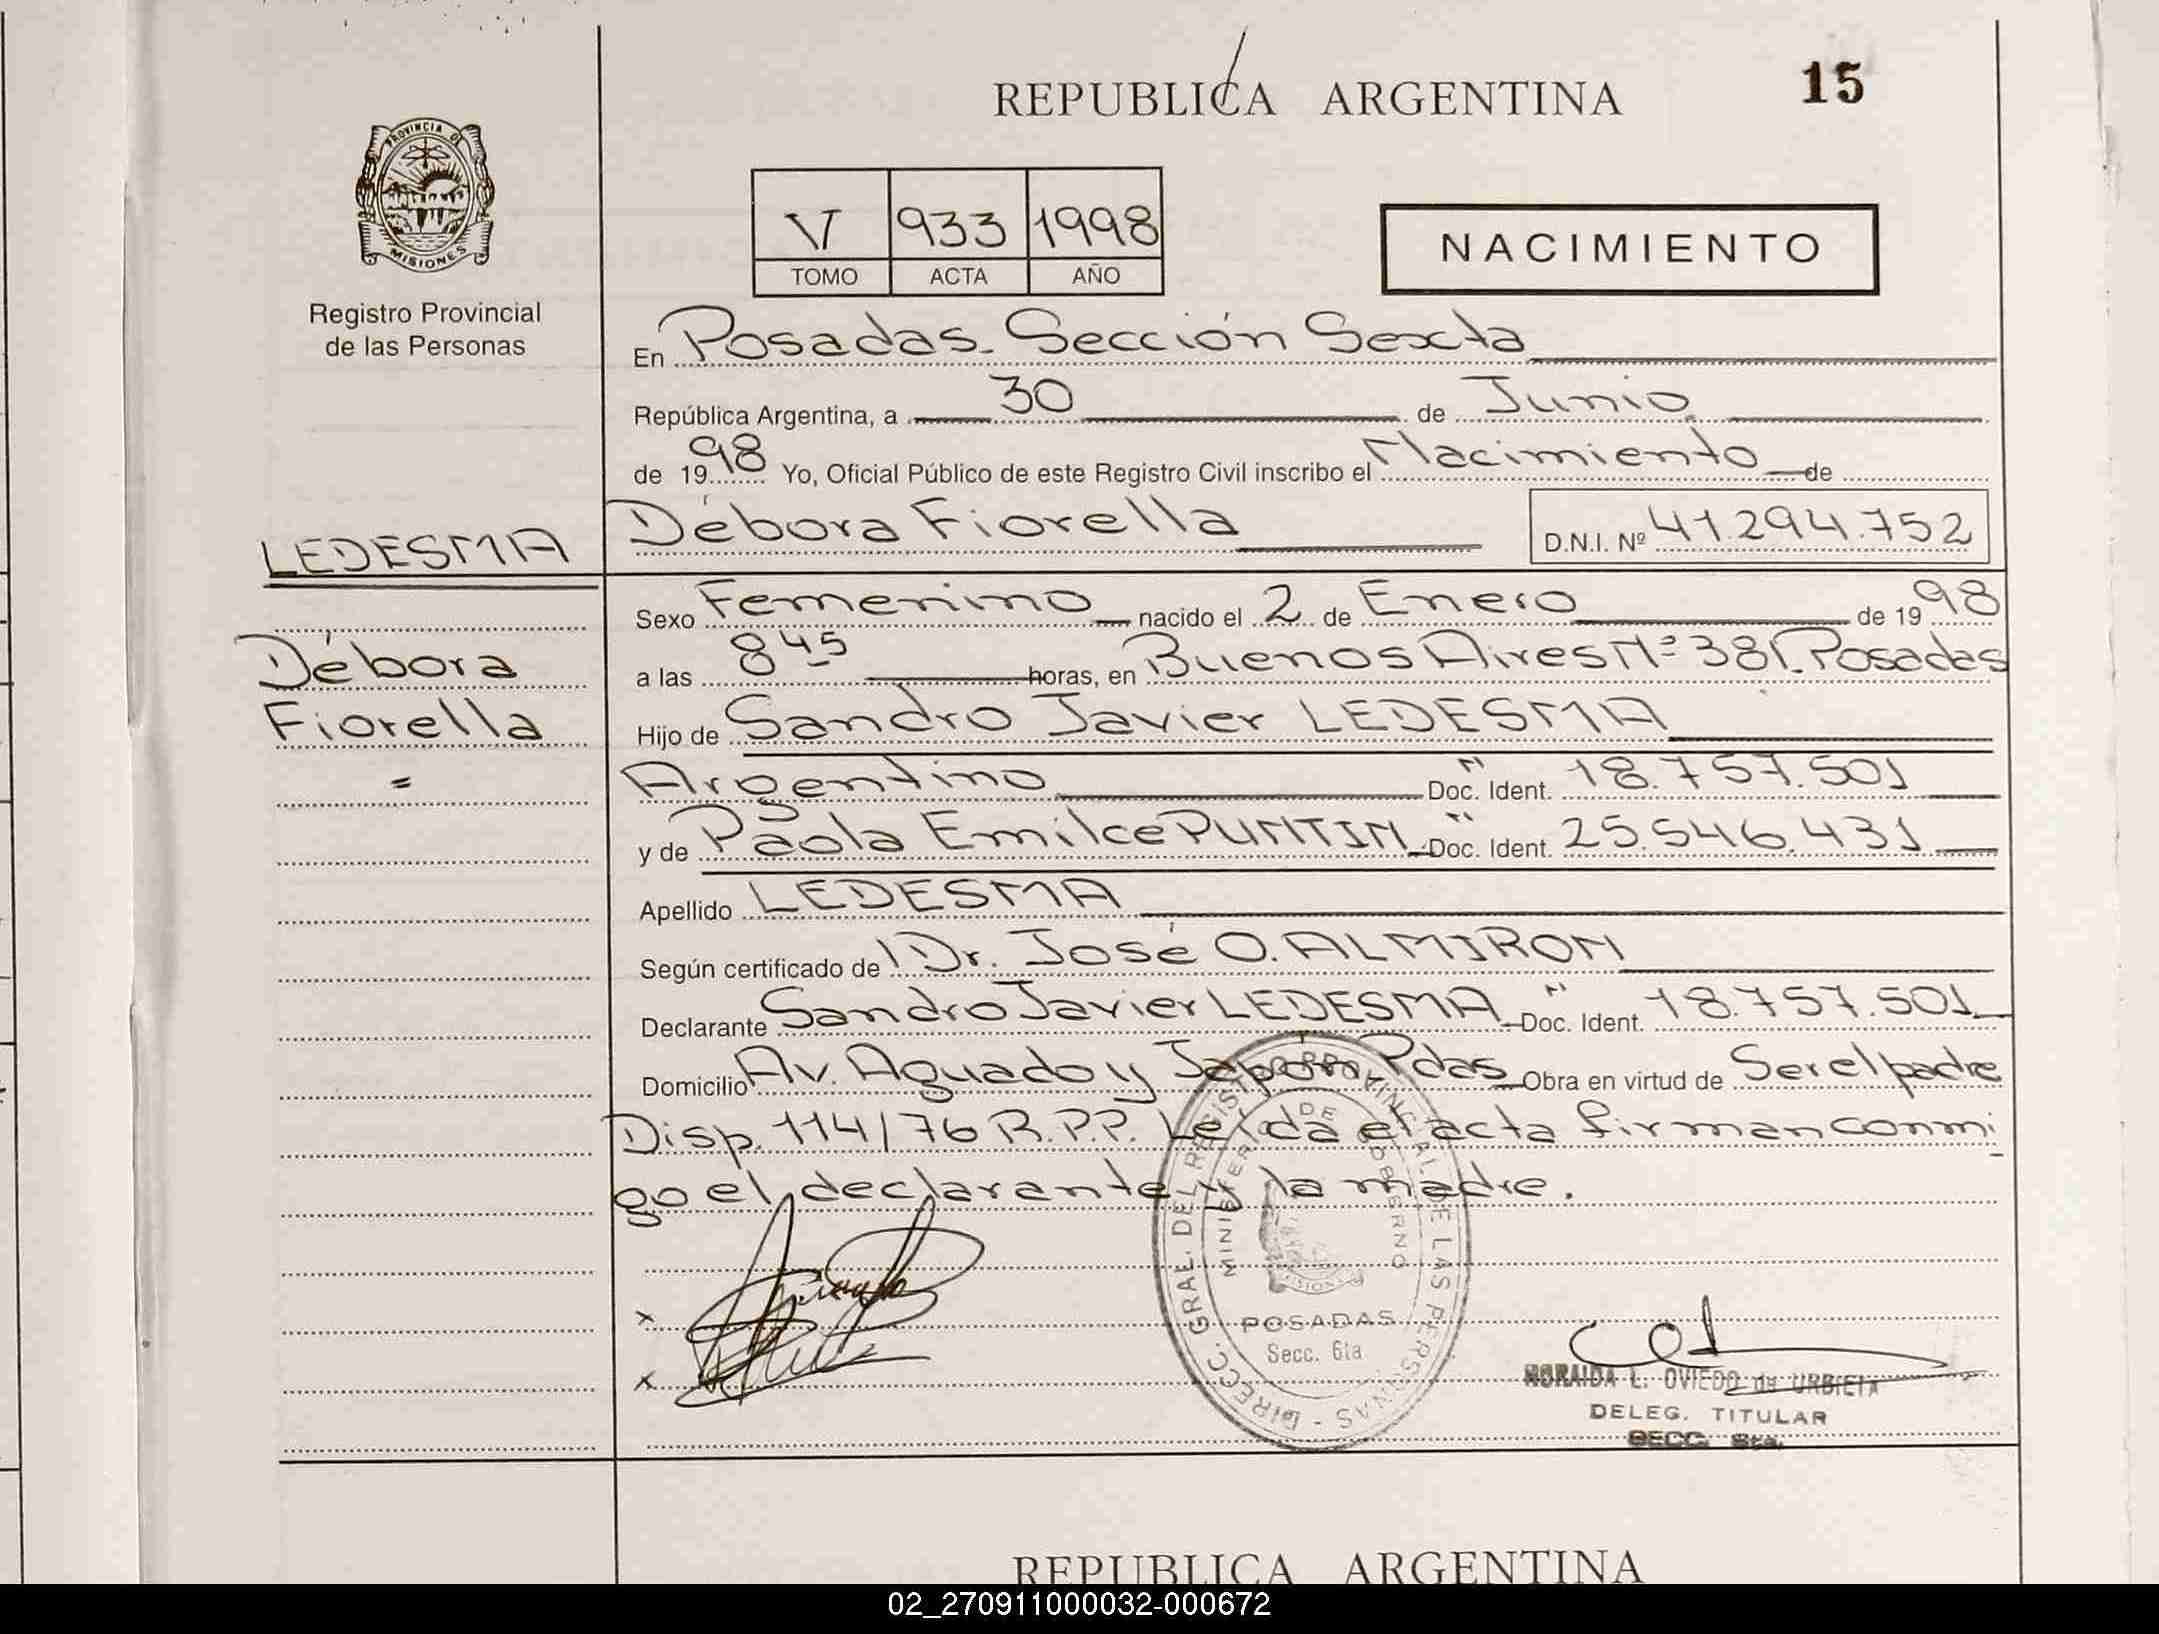 REPUBLICA ARGENTINA
15
PROVINCIA DE
MISIONES
Registro Provincial
de las Personas
V 933 1998
TOMO ACTA AÑO
NACIMIENTO
En Posadas. Sección Sexta
República Argentina, a 30 de Junio
de 1998 Yo, Oficial Público de este Registro Civil inscribo el Nacimiento de
LEDESMA
Débora Fiorella D.N.I. Nº 41.294.752
Sexo Femenino nacido el 2 de Enero de 1998
Débora
a las 8 45 horas, en Buenos Aires Nº 381. Posadas
Fiorella
Hijo de Sandro Javier LEDESMA
Argentino Doc. Ident. 18.757.501
y de Paola Emilce PUNTIN Doc. Ident. 25.546.431
Apellido LEDESMA
Según certificado de Dr. José O. ALMIRON
Declarante Sandro Javier LEDESMA Doc. Ident. 18.757.501
Domicilio Av. Aguado y Japón Pdas Obra en virtud de Ser el padre
Disp. 114/76 R.P.P. Leída el acta firman conmi
go el declarante y la madre.
DIRECC. GRAL. DEL REGISTRO PROVINCIAL DE LAS PERSONAS
MINISTERIO DE GOBIERNO
MISIONES
POSADAS
Secc. 6ta
x
x
NORAIDA L. OVIEDO de URBIETA
DELEG. TITULAR
SECC. 6ta.
REPUBLICA ARGENTINA
02_270911000032-000672